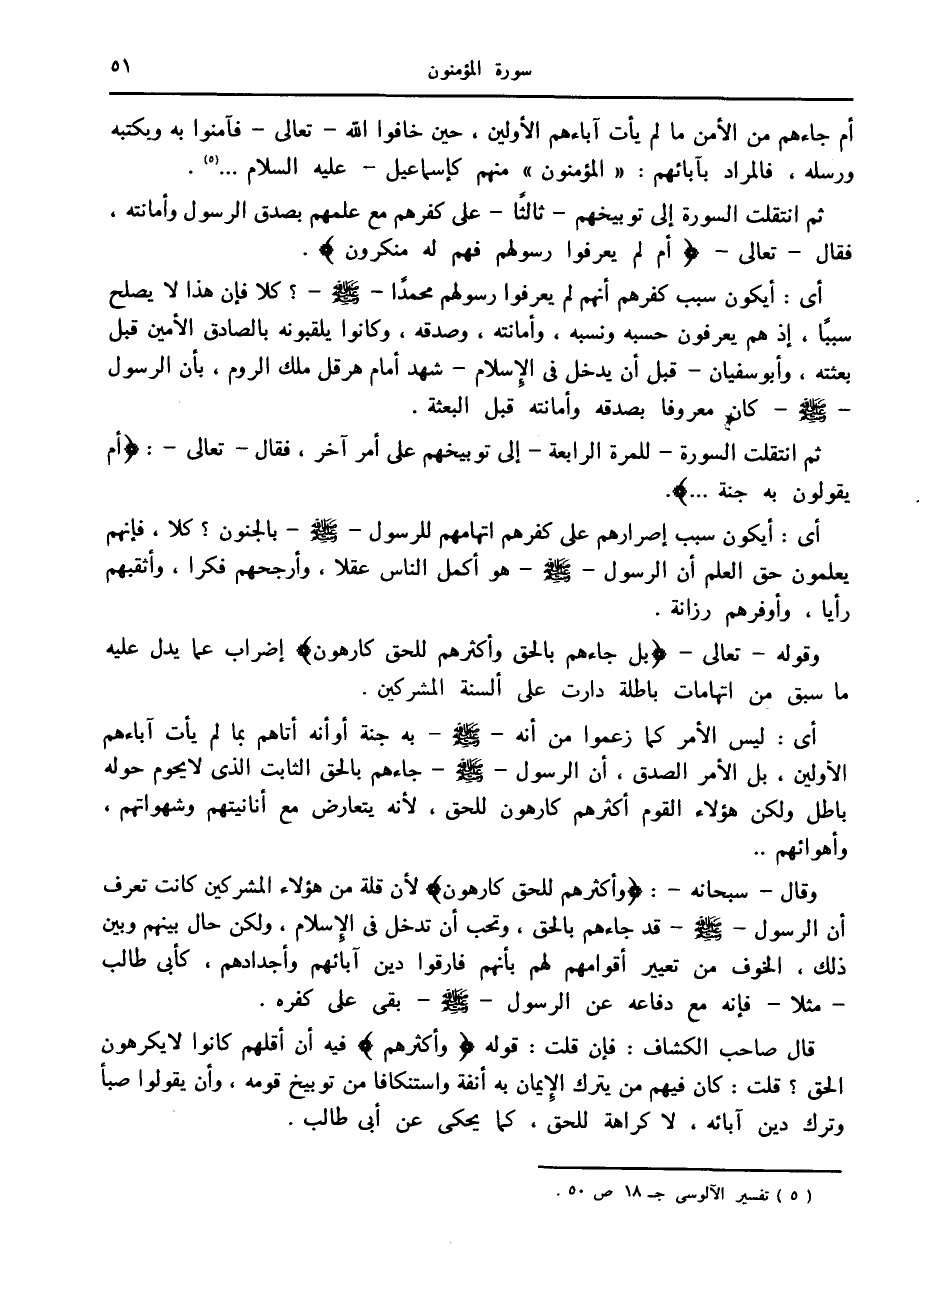 سورة المؤمنون
٥١
أم جاءهم من الأمن ما لم يأت آباءهم الأولين ، حين خافوا الله – تعالى – فآمنوا به وبكتبه
ورسله ، فالمراد بآبائهم : « المؤمنون » منهم كإسماعيل – عليه السلام ...(٥) .
ثم انتقلت السورة إلى توبيخهم – ثالثًا – على كفرهم مع علمهم بصدق الرسول وأمانته ،
فقال – تعالى – ﴿ أم لم يعرفوا رسولهم فهم له منكرون ﴾ .
أى : أيكون سبب كفرهم أنهم لم يعرفوا رسولهم محمدًا – ﷺ – ؟ كلا فإن هذا لا يصلح
سببًا ، إذ هم يعرفون حسبه ونسبه ، وأمانته ، وصدقه ، وكانوا يلقبونه بالصادق الأمين قبل
بعثته ، وأبوسفيان – قبل أن يدخل فى الإسلام – شهد أمام هرقل ملك الروم ، بأن الرسول
– ﷺ – كان معروفا بصدقه وأمانته قبل البعثة .
ثم انتقلت السورة – للمرة الرابعة – إلى توبيخهم على أمر آخر ، فقال – تعالى – : ﴿أم
يقولون به جنة ...﴾.
أى : أيكون سبب إصرارهم على كفرهم اتهامهم للرسول – ﷺ – بالجنون ؟ كلا ، فإنهم
يعلمون حق العلم أن الرسول – ﷺ – هو أكمل الناس عقلا ، وأرجحهم فكرا ، وأثقبهم
رأيا ، وأوفرهم رزانة .
وقوله – تعالى – ﴿بل جاءهم بالحق وأكثرهم للحق كارهون﴾ إضراب عما يدل عليه
ما سبق من اتهامات باطلة دارت على ألسنة المشركين .
أى : ليس الأمر كما زعموا من أنه – ﷺ – به جنة أوأنه أتاهم بما لم يأت آباءهم
الأولين ، بل الأمر الصدق ، أن الرسول – ﷺ – جاءهم بالحق الثابت الذى لايحوم حوله
باطل ولكن هؤلاء القوم أكثرهم كارهون للحق ، لأنه يتعارض مع أنانيتهم وشهواتهم ،
وأهوائهم ..
وقال – سبحانه – : ﴿وأكثرهم للحق كارهون﴾ لأن قلة من هؤلاء المشركين كانت تعرف
أن الرسول – ﷺ – قد جاءهم بالحق ، وتحب أن تدخل فى الإسلام ، ولكن حال بينهم وبين
ذلك ، الخوف من تعيير أقوامهم لهم بأنهم فارقوا دين آبائهم وأجدادهم ، كأبى طالب
– مثلا – فإنه مع دفاعه عن الرسول – ﷺ – بقى على كفره .
قال صاحب الكشاف : فإن قلت : قوله ﴿ وأكثرهم ﴾ فيه أن أقلهم كانوا لايكرهون
الحق ؟ قلت : كان فيهم من يترك الإيمان به أنفة واستنكافا من توبيخ قومه ، وأن يقولوا صبأ
وترك دين آبائه ، لا كراهة للحق ، كما يحكى عن أبى طالب .
( ٥ ) تفسير الآلوسى جـ ١٨ ص ٥٠ .